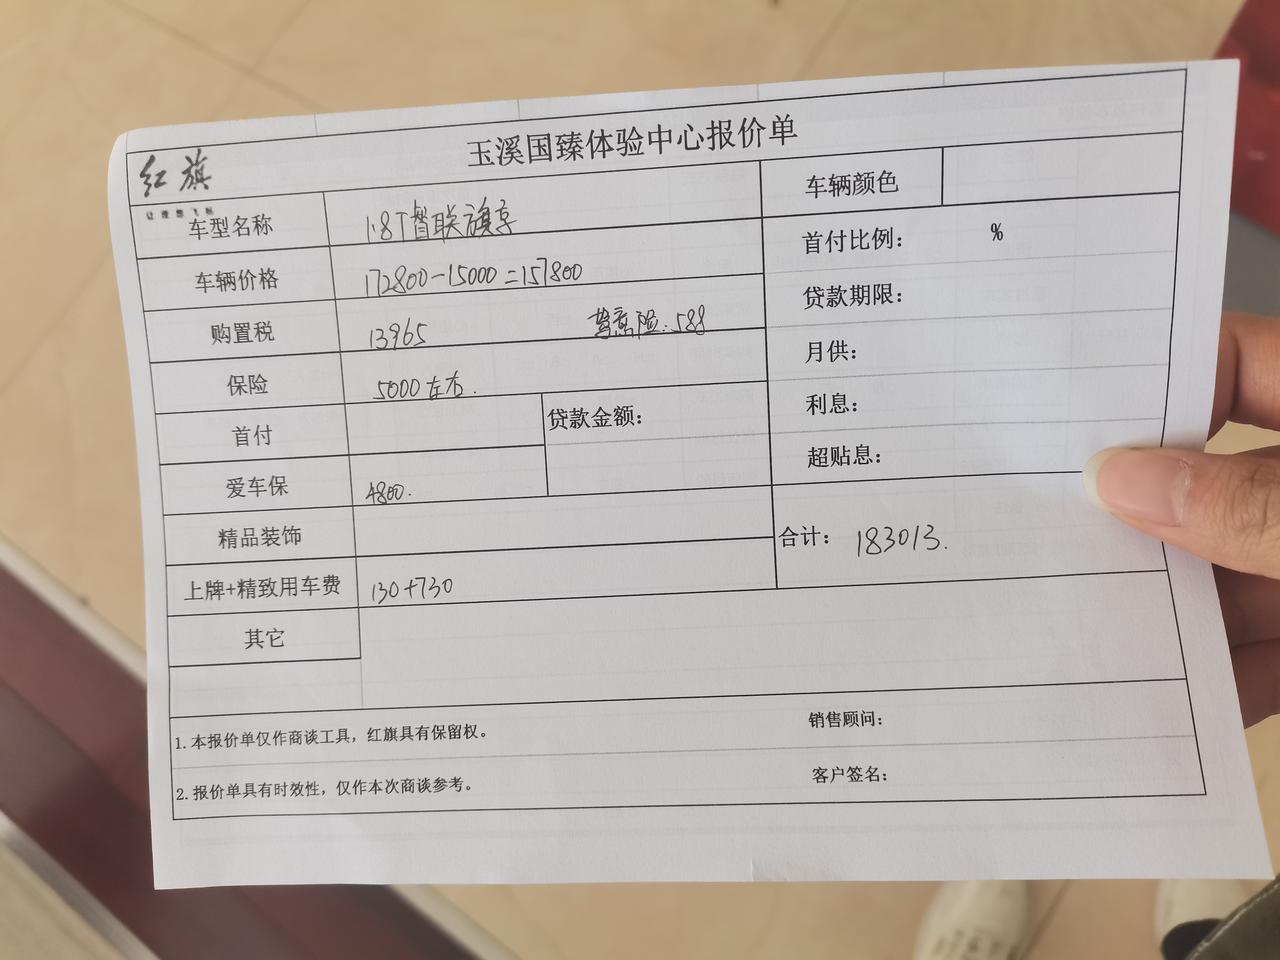 玉溪国臻体验中心报价单
红旗
让理想飞扬
车型名称 1.8T智联旗享 车辆颜色
车辆价格 172800-15000=157800 首付比例: %
购置税 13965 驾意险.588 贷款期限:
保险 5000左右. 月供:
首付 贷款金额: 利息:
爱车保 4800. 超贴息:
精品装饰
合计: 183013.
上牌+精致用车费 130+730
其它
1.本报价单仅作商谈工具，红旗具有保留权。 销售顾问:
2.报价单具有时效性，仅作本次商谈参考。 客户签名: